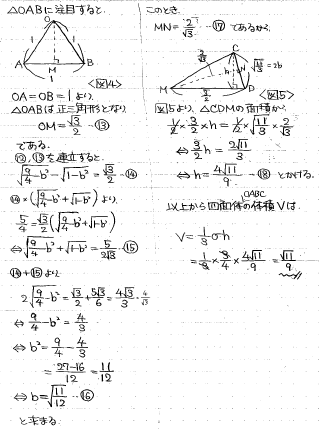 △OABに注目すると、
O
1
1
A
M
B
1
<図4>
OA=OB=1より、
△OABは正三角形となり
OM=√3/2 …⑬
である。
⑫,⑬を連立すると
√(9/4-b²)-√(1-b²)=√3/2 …⑭
⑭×(√(9/4-b²)+√(1-b²))より
5/4=√3/2(√(9/4-b²)+√(1-b²))
⇔√(9/4-b²)+√(1-b²)=5/(2√3) …⑮
⑭+⑮より
2√(9/4-b²)=√3/2+5√3/6=4√3/3 4/√3
⇔9/4-b²=4/3
⇔b²=9/4-4/3
=(27-16)/12=11/12
⇔b=√(11/12) …⑯
と求まる。
このとき、
MN=2/√3 …⑰ であるから、
C
M
N
D
h
3/2
√11/√3=2b
<図5>
図5より、△CDMの面積から
1/2×3/2×h=1/2×√11/√3×2/√3
⇔3/2h=2√11/3
⇔h=4√11/9 …⑱ とかける。
以上から四面体OABCの体積Vは
V=1/3σh
=1/3×3/4×4√11/9=√11/9